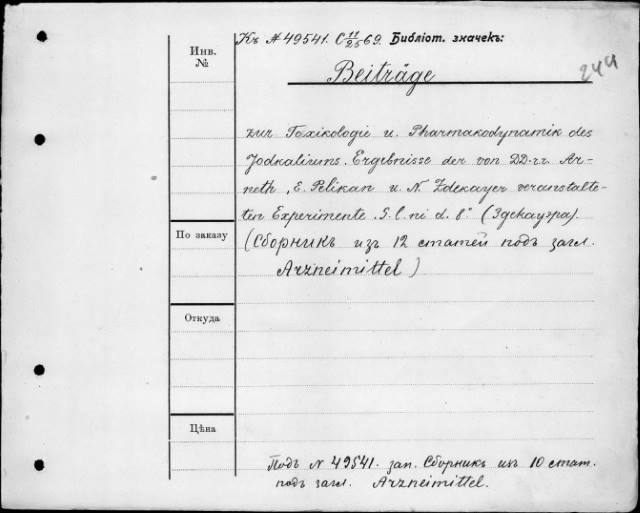 Къ № 49541. С 11/25 69. Библіот. значекъ:
Инв.
№
Beiträge
244
zur Toxikologie u. Pharmakodynamik des
Jodkaliums. Ergebnisse der von DD-rr. Ar-
neth, E. Pelikan u. N. Zdekauer veranstalte-
ten Experimente. S. l. ni d. 8° (Здекауэра).
По заказу
(Сборникъ изъ 12 статей подъ загл.
Arzneimittel)
Откуда
Цѣна
Подъ N 49541. зап. Сборникъ изъ 10 стат.
подъ загл. Arzneimittel.